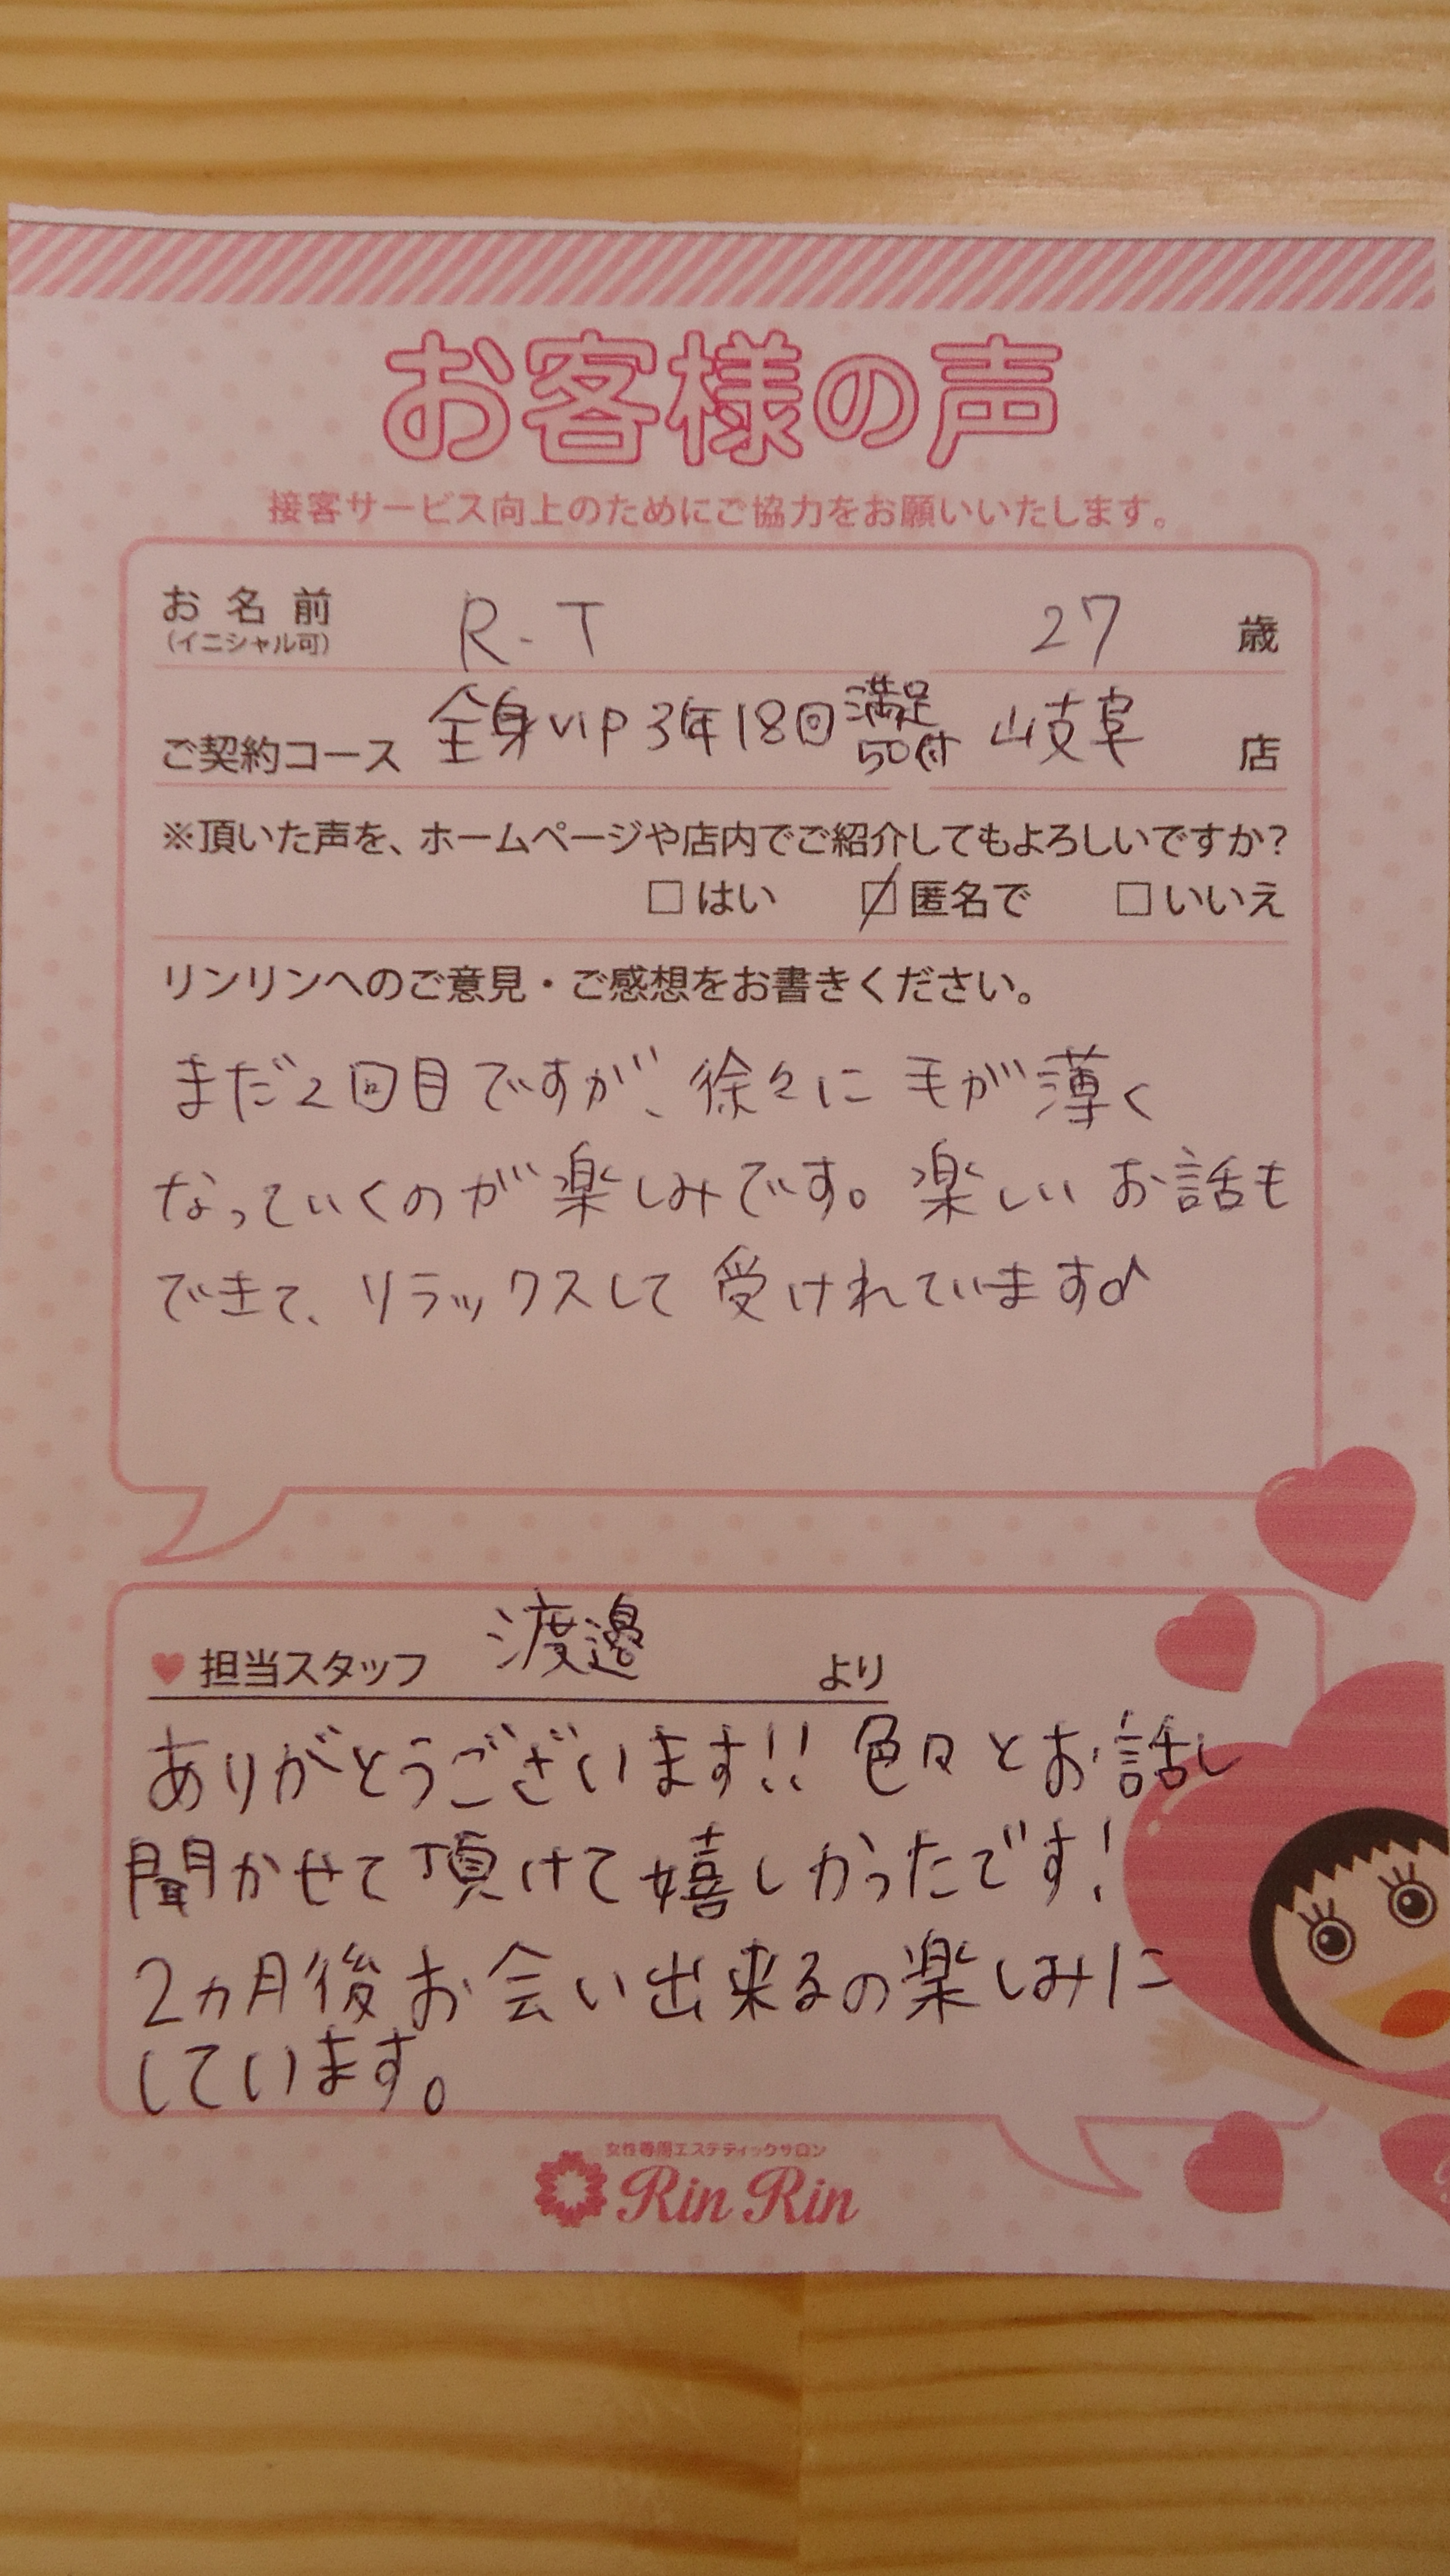 お客様の声
接客サービス向上のためにご協力をお願いいたします。
お名前 R-T 27 歳
(イニシャル可)
ご契約コース 全身vip3年18回 満足50付 岐阜 店
※頂いた声を、ホームページや店内でご紹介してもよろしいですか?
□はい ☑匿名で □いいえ
リンリンへのご意見・ご感想をお書きください。
まだ2回目ですが、徐々に毛が薄く
なっていくのが楽しみです。楽しいお話も
できて、リラックスして受けれています♪
♥担当スタッフ 渡邉 より
ありがとうございます!! 色々とお話し
聞かせて頂けて嬉しかったです!
2ヵ月後お会い出来るの楽しみに
しています。
女性専用エステティックサロン
Rin Rin